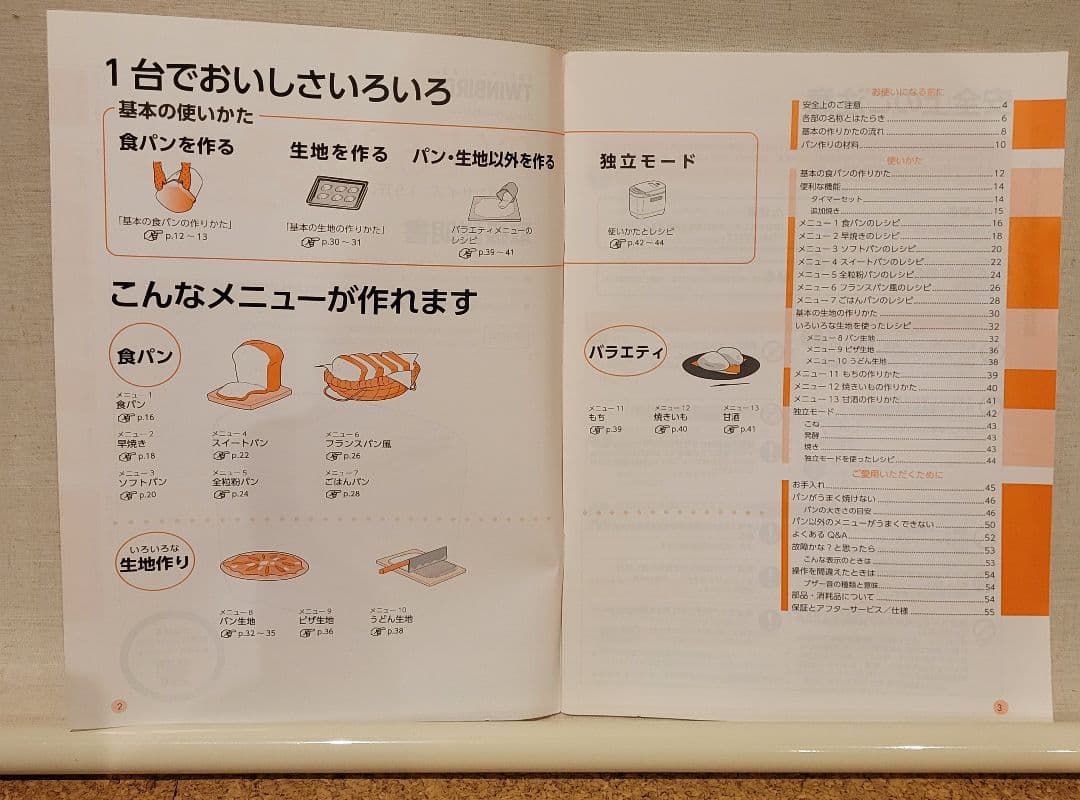 1台でおいしさいろいろ
基本の使いかた
食パンを作る
「基本の食パンの作りかた」
p.12〜13
生地を作る
「基本の生地の作りかた」
p.30〜31
パン・生地以外を作る
バラエティメニューの
レシピ
p.39〜41
独立モード
使いかたとレシピ
p.42〜44
こんなメニューが作れます
食パン
メニュー1
食パン
p.16
メニュー2
早焼き
p.18
メニュー3
ソフトパン
p.20
メニュー4
スイートパン
p.22
メニュー5
全粒粉パン
p.24
メニュー6
フランスパン風
p.26
メニュー7
ごはんパン
p.28
いろいろな
生地作り
メニュー8
パン生地
p.32〜35
メニュー9
ピザ生地
p.36
メニュー10
うどん生地
p.38
2
バラエティ
メニュー11
もち
p.39
メニュー12
焼きいも
p.40
メニュー13
甘酒
p.41
お使いになる前に
安全上のご注意 4
各部の名称とはたらき 6
基本の作りかたの流れ 8
パン作りの材料 10
使いかた
基本の食パンの作りかた 12
便利な機能 14
タイマーセット 14
追加焼き 15
メニュー1 食パンのレシピ 16
メニュー2 早焼きのレシピ 18
メニュー3 ソフトパンのレシピ 20
メニュー4 スイートパンのレシピ 22
メニュー5 全粒粉パンのレシピ 24
メニュー6 フランスパン風のレシピ 26
メニュー7 ごはんパンのレシピ 28
基本の生地の作りかた 30
いろいろな生地を使ったレシピ 32
メニュー8 パン生地 32
メニュー9 ピザ生地 36
メニュー10 うどん生地 38
メニュー11 もちの作りかた 39
メニュー12 焼きいもの作りかた 40
メニュー13 甘酒の作りかた 41
独立モード 42
こね 43
発酵 43
焼き 43
独立モードを使ったレシピ 44
ご愛用いただくために
お手入れ 45
パンがうまく焼けない 46
パンの大きさの目安 46
パン以外のメニューがうまくできない 50
よくあるQ&A 52
故障かな？と思ったら 53
こんな表示のときは 53
操作を間違えたときは 54
ブザー音の種類と意味 54
部品・消耗品について 54
保証とアフターサービス／仕様 55
3